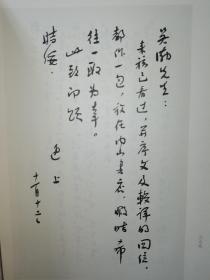 吴渤先生：
来稿已看过，并序文及较译的回信，
都作一包，放在内山书店，暇时希
往一取为幸。
此致即颂
时绥。
迅 上
十一月十六夜